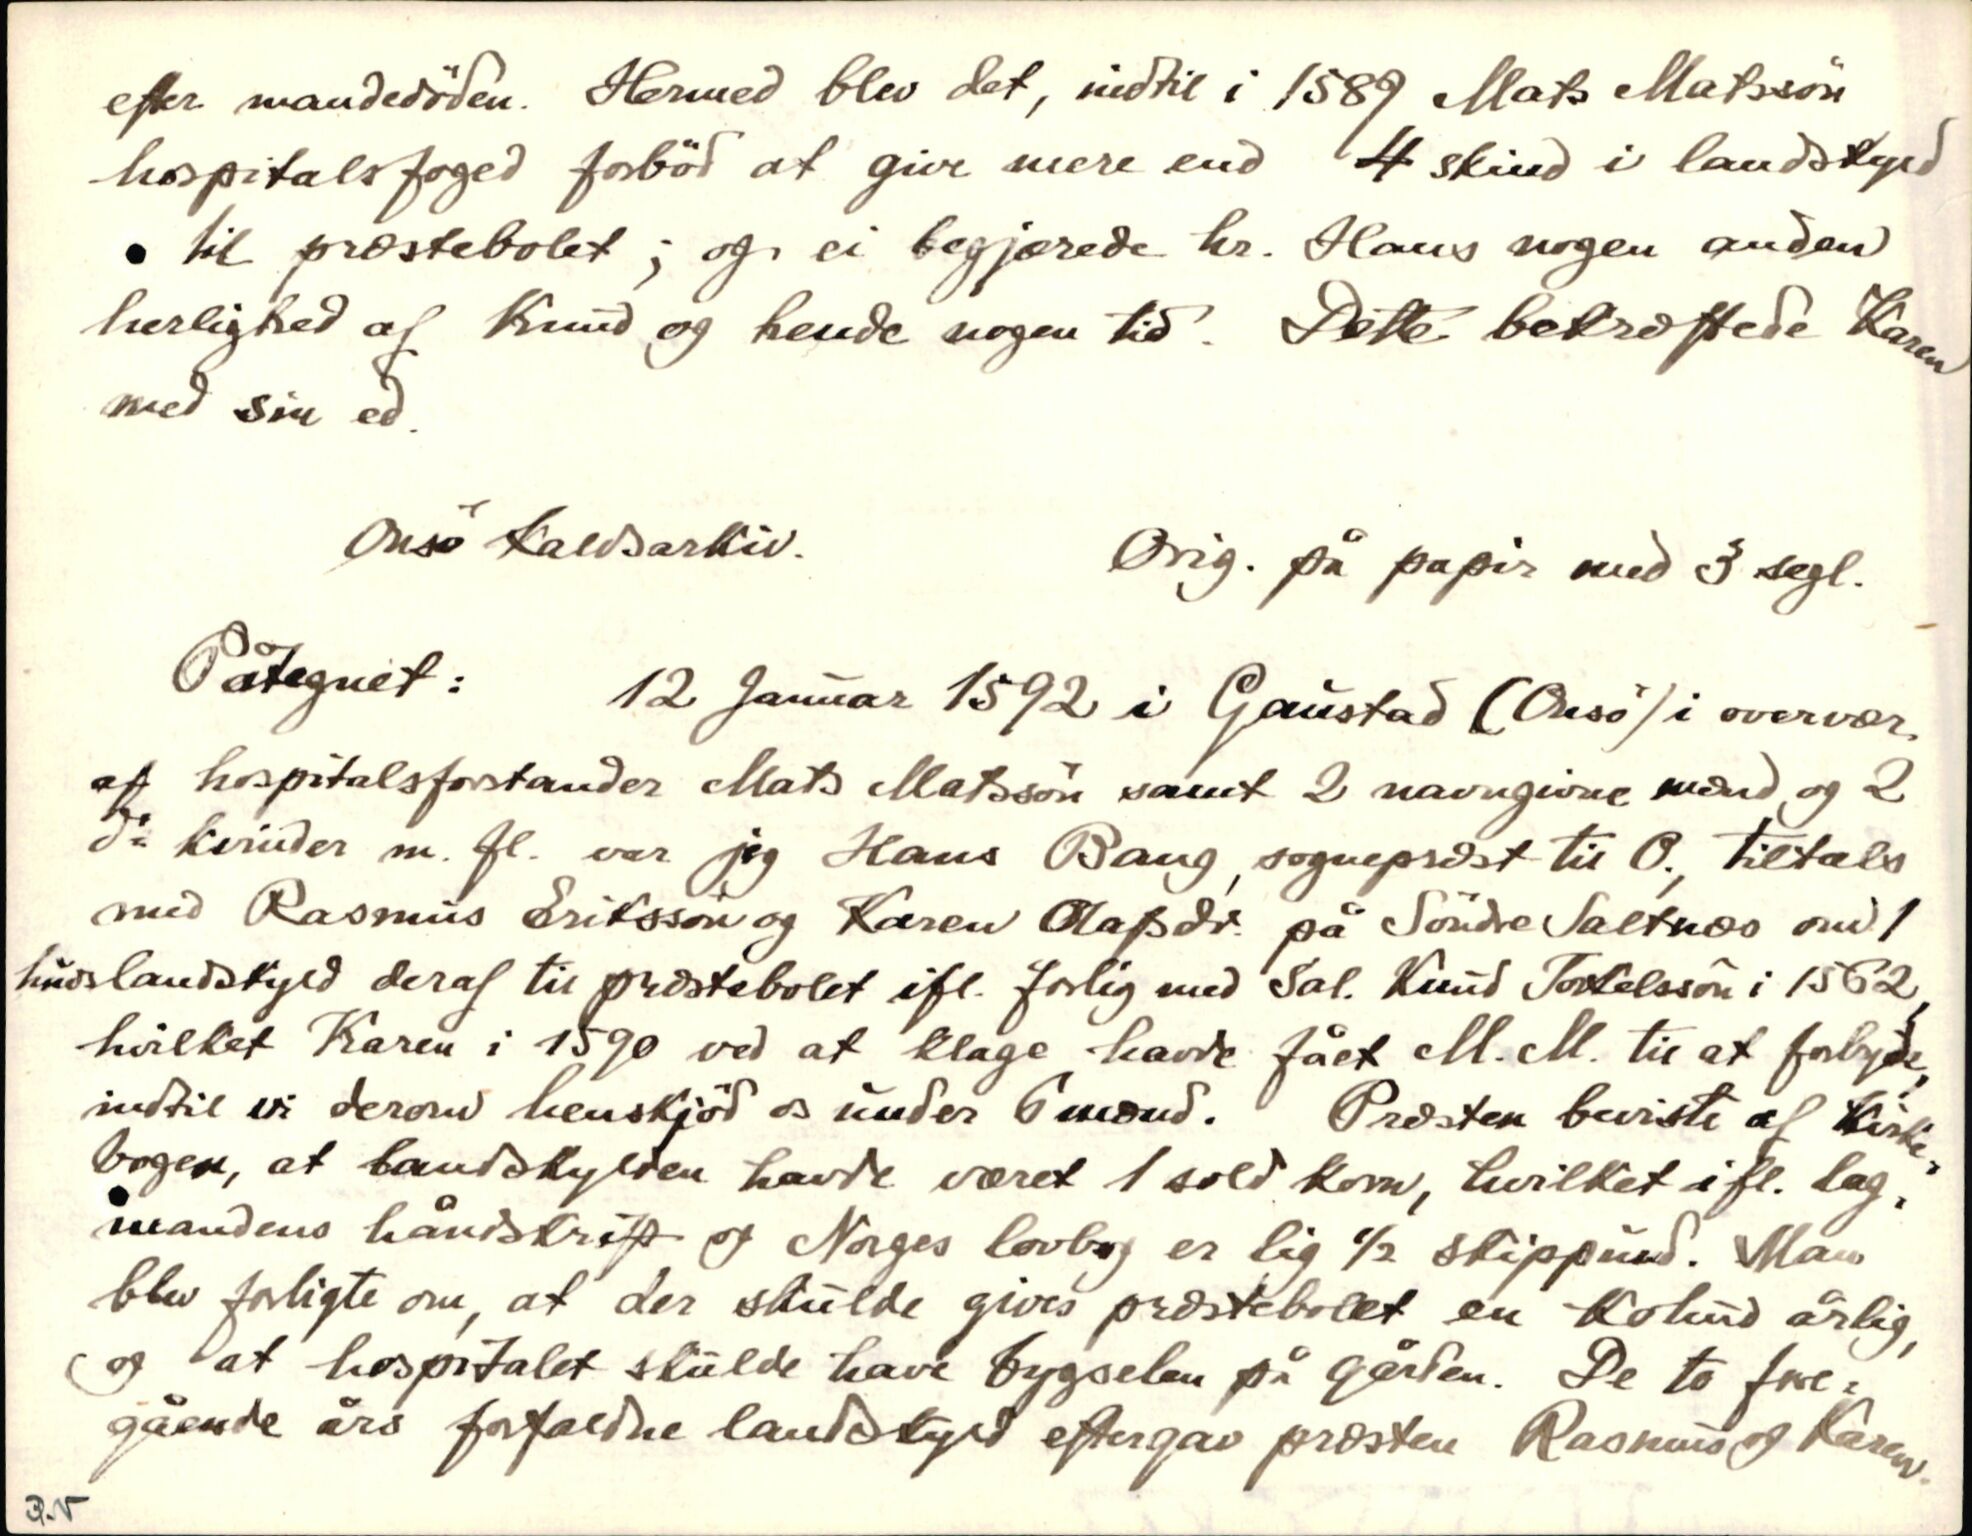 efter mandedöden. Hermed blev det, indtil i 1589 Mats Matssön
hospitalsfoged forböd at give mere end 4 skind i landskyld
til præstebolet; og ei begjærede hr. Hans nogen anden
herlighed af Knud og hende nogen tid. Dette bekræftede Karen
med sin ed.
Onsö Kaldsarkiv.
Orig. på papir med 3 segl.
Påtegnet: 12 Januar 1592 i Gaustad (Onsö) i overvær.
af hospitalsforstander Mats Matssön samt 2 navngivne mænd og 2
do kvinder m. fl. var jeg Hans Bang, sognepræst til O., tiltals
med Rasmus Erikssön og Karen Olafsdr. på Söndre Saltnæs om 1
huds landskyld deraf til præstebolet ifl. forlig med Sal. Knud Torkelssön i 1562,
hvilket Karen i 1590 ved at klage havde fået M. M. til at forbyde,
indtil vi derom henskjöd os under 6 mænd. Præsten beviste af Kirke-
bogen, at landskylden havde været 1 sold korn, hvilket ifl. lag-
mandens håndskrift og Norges lovbog er lig 1/2 skippund. Man
blev forligte om, at der skulde gives præstebolet en Kohud årlig,
og at hospitalet skulde have bygselen på gården. De to fore-
gående års forfaldne landskyld eftergav præsten Rasmus og Karen.